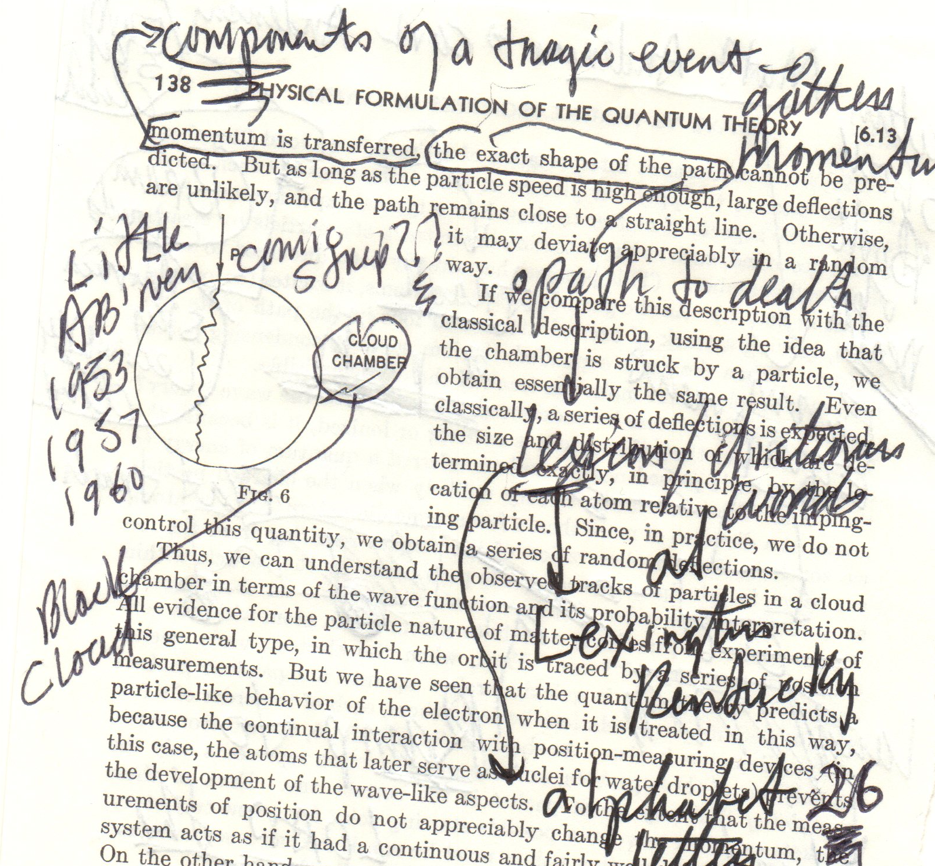 components of a tragic event
gathers
momentum
138 PHYSICAL FORMULATION OF THE QUANTUM THEORY [6.13
momentum is transferred, the exact shape of the path cannot be pre-
dicted. But as long as the particle speed is high enough, large deflections
are unlikely, and the path remains close to a straight line. Otherwise,
it may deviate appreciably in a random
way.
If we compare this description with the
classical description, using the idea that
the chamber is struck by a particle, we
obtain essentially the same result. Even
classically, a series of deflections is expected,
the size and distribution of which are de-
termined exactly, in principle, by the lo-
cation of each atom relative to the imping-
ing particle. Since, in practice, we do not
control this quantity, we obtain a series of random deflections.
Little
AB'ner
1953
1957
1960
comic
strip?
CLOUD
CHAMBER
FIG. 6
Black
Cloud
path to death
words
at
Lexington
Kentucky
alphabet 26
letters
Thus, we can understand the observed tracks of particles in a cloud
chamber in terms of the wave function and its probability interpretation.
All evidence for the particle nature of matter comes from experiments of
this general type, in which the orbit is traced by a series of position
measurements. But we have seen that the quantum theory predicts a
particle-like behavior of the electron when it is treated in this way,
because the continual interaction with position-measuring devices (in
this case, the atoms that later serve as nuclei for water droplets) prevents
the development of the wave-like aspects. To the extent that the meas-
urements of position do not appreciably change the momentum, the
system acts as if it had a continuous and fairly
On the other hand